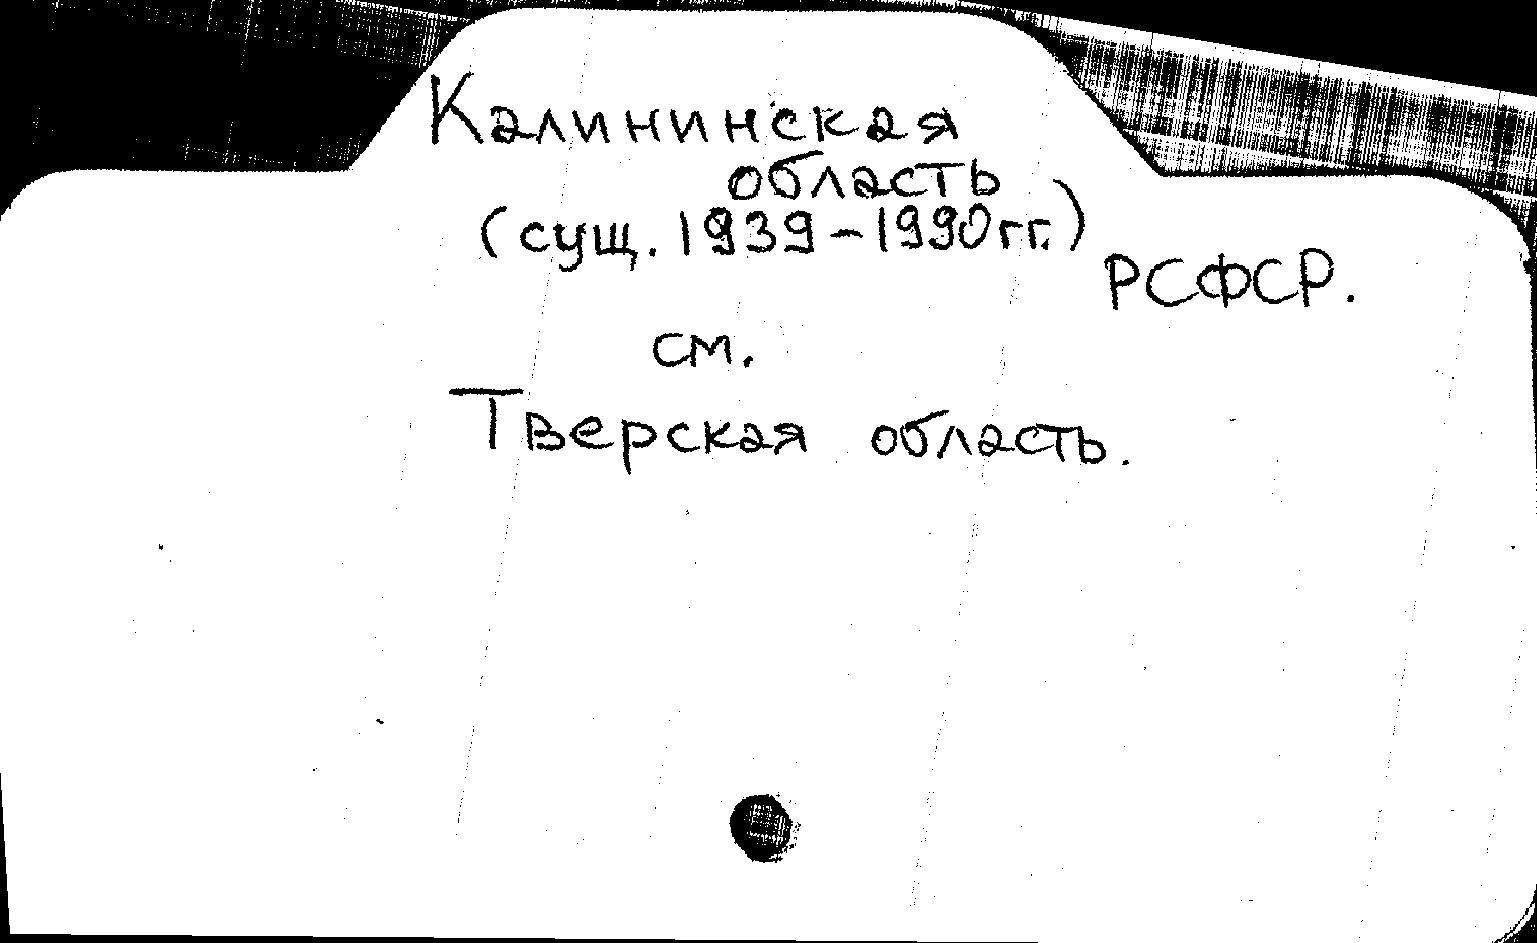 Калининская
область
(сущ. 1939-1990гг.)
РСФСР.
см.
Тверская область.